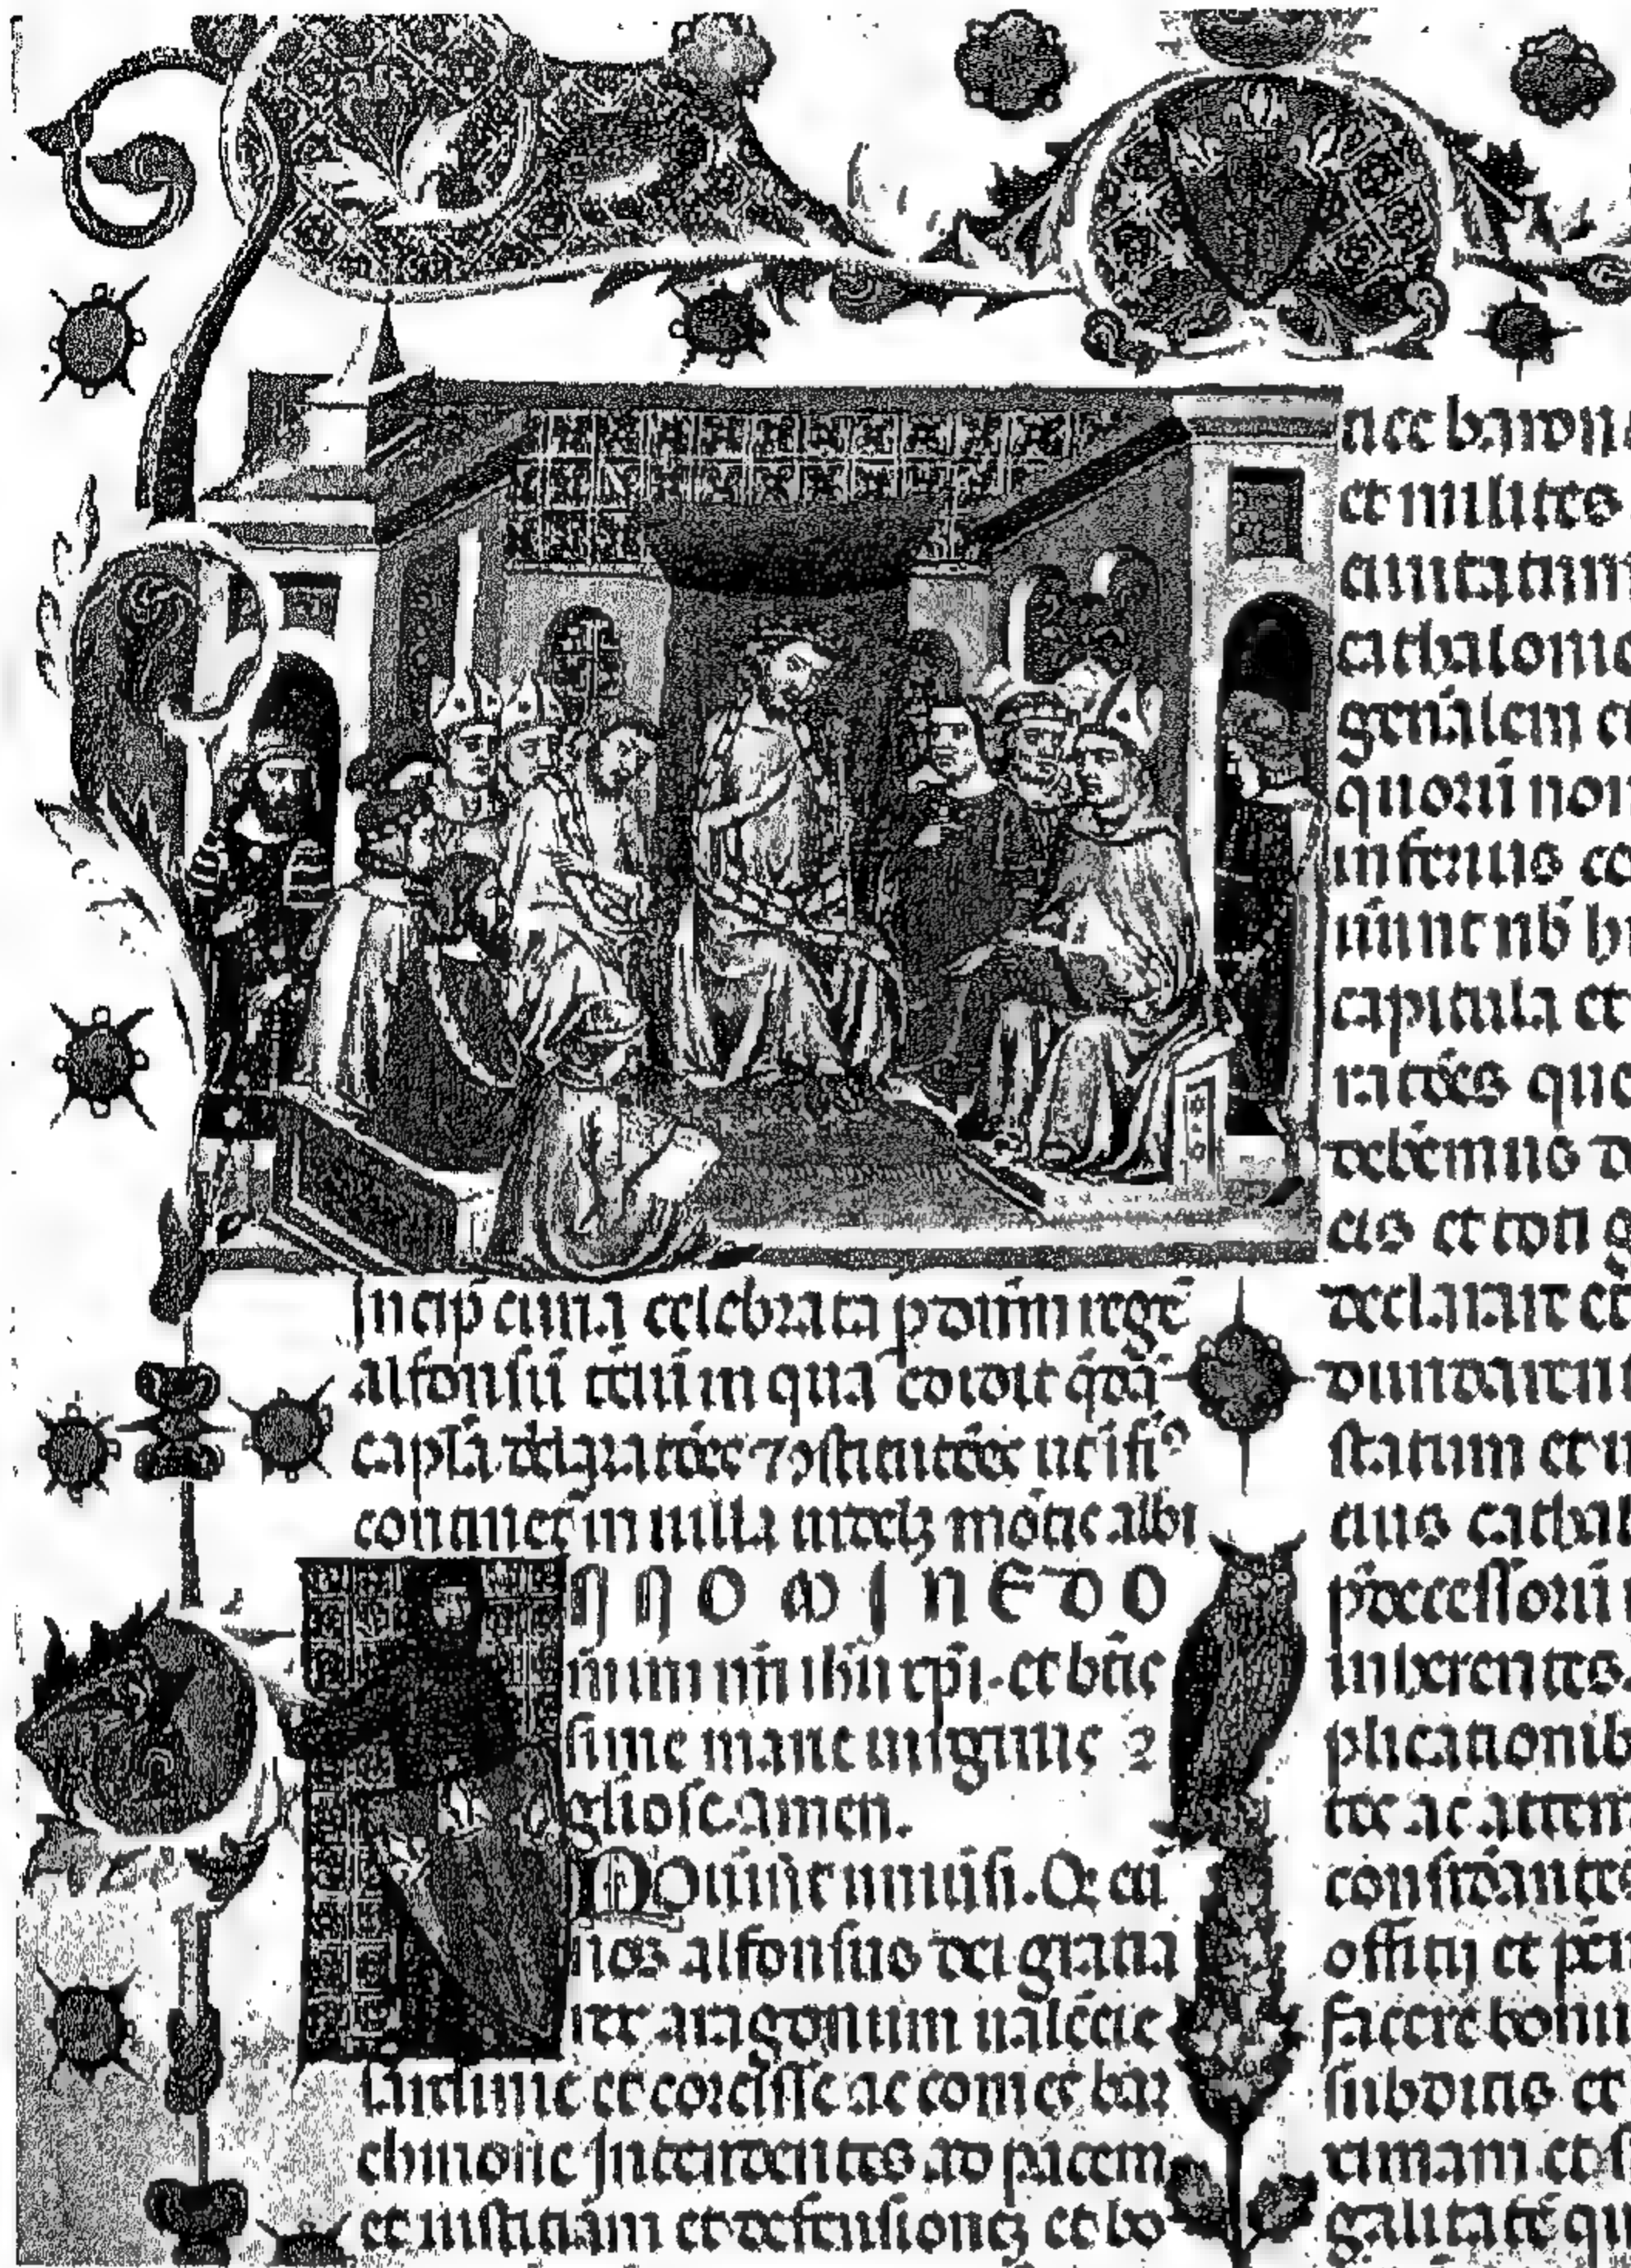 Incip curia celebrata p dnm rege
alfonsu tciu in qua codit qda
capla declaratões 7 ɔstitucões ut ifiꝰ
continet in uilla uocetꝫ môtis albi
IN NOMINE DO
mini nri ihu xpi. et bte
sime marie uirginis 2
gliose. Amen.
Nouint uniuisi. Q cu
nos alfonsus dei gratia
rex aragonum ualêcie
sardinie et corcisse ac comes bar
chinone Intendentes ad pacem
et iustitiam et defensionez et bo
tice baron
et milites
ciuitatum
cathalonie
genalem
quoru non
inferius
capitula et
ratões que
debemus
eis et toti
declarait et
statum et
cius cathal
pdecessoru
inherentes
plicationib
ac attem
considantes
offitij et
facere bonu
subditis et
galitate qu